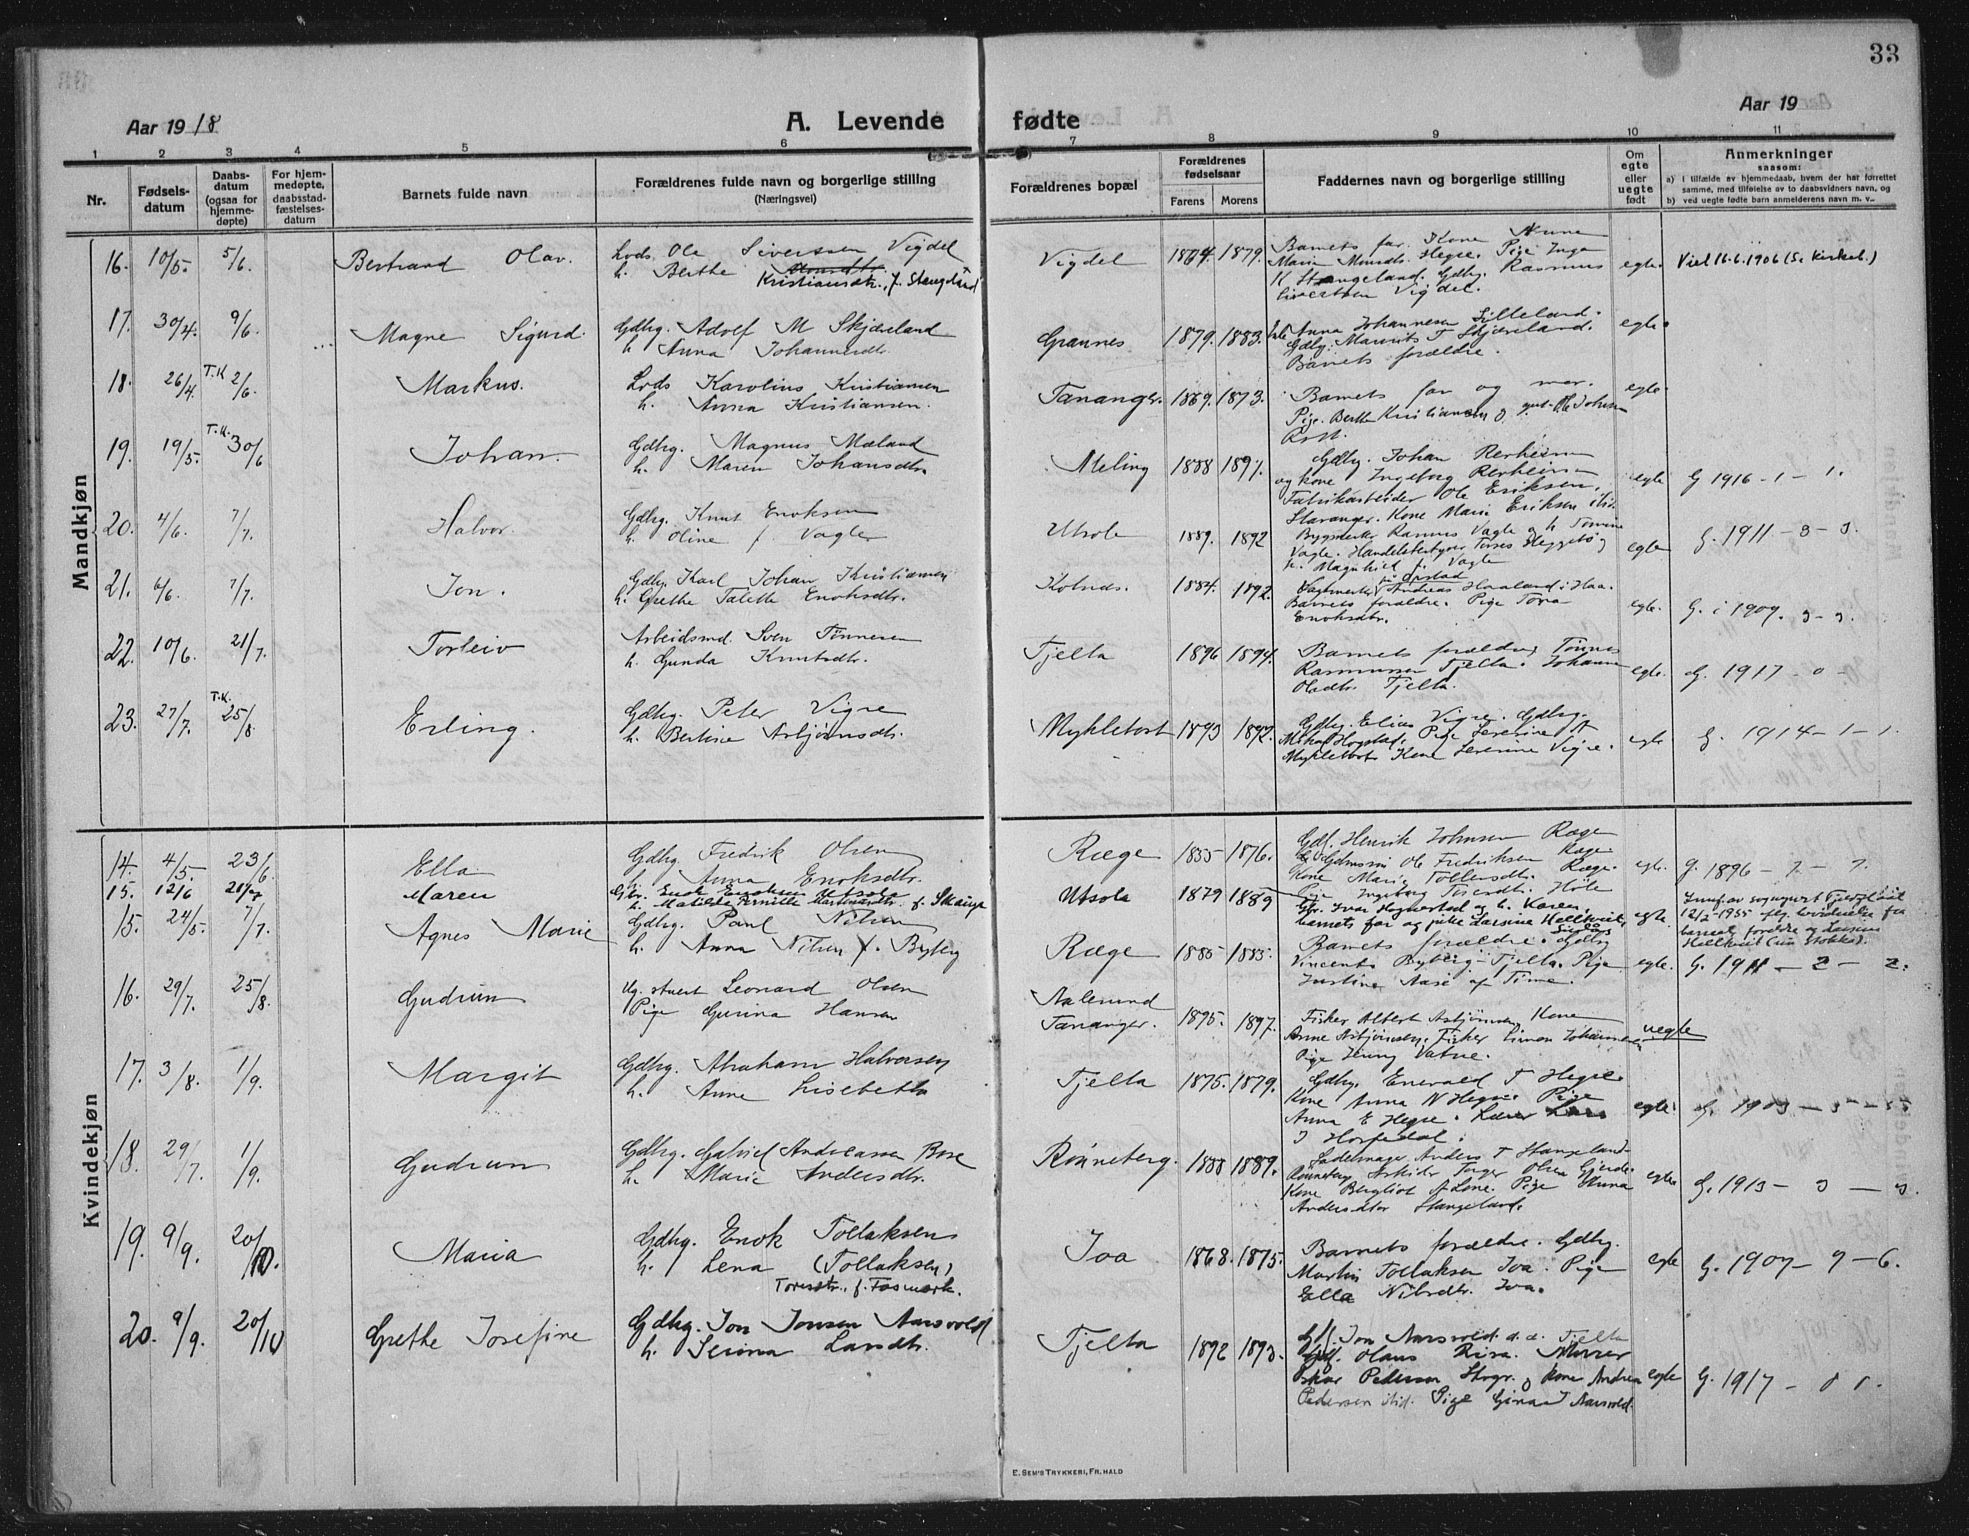 33
Aar 1918
A. Levende fødte
Aar 19
1 2 3 4 5 6 7 8 9 10 11
Nr.
Fødsels-
datum
Daabs-
datum
(ogsaa for
hjemme-
døpte)
For hjem-
medøpte,
daabsstad-
fæstelses-
datum
Barnets fulde navn
Forældrenes fulde navn og borgerlige stilling
(Næringsvei)
Forældrenes bopæl
Forældrenes
fødselsaar
Farens Morens
Faddernes navn og borgerlige stilling
Om
egte
eller
uegte
født
Anmerkninger
saasom:
a) i tilfælde av hjemmedaab, hvem der har forrettet
samme, med tilføielse av to daabsvidners navn, og
b) ved uegte fødte barn anmelderens navn m. v.
Mandkjøn
16. 10/5. 5/6. Bertrand Olav. Lods Ole Sivertsen Vigdel
h. Berthe
Kristiansdtr., f. Stangeland
Vigdel 1864. 1879. Barnets far. Kone Anna
Marie Hegre. Pige Inga
K Stangeland. Gdbg. Rasmus
Sivertsen Vigdel.
egte. Viel 16.6.1906 (So. kirkeb.)
17. 30/4. 9/6. Magne Sigurd. Gdbg. Adolf M Skjæveland
h. Anna Johannesdtr.
Grannes 1879. 1883. Anna Johannesen Lilleland.
Gdbg. Maurits T Skjæveland.
Barnets forældre.
egte.
18. 26/4. T.K. 2/6. Markus. Lods Karolius Kristiansen
h. Anna Kristiansen.
Tananger. 1869. 1873. Barnets far og mor.
Pige Berthe Kristiansen og gut Ole Johan
Rott.
egte
19. 19/5. T.K. 30/6 Johan. Gdbg. Magnus Mæland
h. Maren Johansdtr.
Meling 1888 1891. Gdbg. Johan Rerheim
og kone Ingeborg Rerheim
Fabrikarbeider Ole Eriksen,
Stavanger. Kone Marie Eriksen ibid.
egte G 1916 - 1 - 1.
20. 4/6. 7/7. Halvor. Gdbg. Knut Enoksen
h. Oline f. Vagle
Utsola 1889. 1892 Bygmester Rasmus Vagle og h. Tomine
Vagle. Handelsbestyrer Heggebø
h. Magnhild f. Vagle
egte G. 1911 - 3 - 3.
21. 6/6. 7/7. Jon. Gdbg. Karl Johan Kristiansen
h. Grethe Talette Enoksdtr.
Kolnes. 1884. 1892. Andreas Haaland i Haa.
Barnets forældre. Pige Tora
Enoksdtr.
egte. G. i 1909. 3 - 3.
22. 10/6. 21/7. Torleiv Arbeidsmd. Sven Tønnesen
h. Gunda Knutsdtr.
Tjelta 1896 1894. Barnets forældre Tønnes
Rasmussen Tjelta. Johanne
Olsdtr. Tjelta.
egte. G. 1917 - 0 -
23. 27/7. T.K. 25/8. Erling. Gdbg. Peter Vigre
h. Bertine Asbjørnsdtr.
Myklebost 1893 1892. Gdbg. Elias Vigre. Gdbg.
Mikal Hogstad. Pige Severine A
Myklebost. Kone Severine Vigre.
egte G. 1914 - 1 - 1.
Kvindekjøn
14. 4/5. 23/6. Ella Gdbg. Fredrik Olsen
h. Anna Enoksdtr.
Ræge 1855 1876. Gdf. Henrik Johnsen Ræge
Ole Fredriksen Ræge
Kone Marie Tollefsdtr. Ræge.
Pige Ingeborg Høle
egte. G. 1896 - 7 - 7.
15. 12/6 Maren Gbr. Enok Enoksen Utsola
h. Matilde Pernille f. Skaiga
Utsola 1879 1889 Gbr. Ivar Hognestad og h. Karen,
barnets far og pike Larsine Hellkvist,
egte.
15. 24/5. 7/7. Agnes Marie Gdbg. Paul Nilsen
h. Anna Nilsen f. Byberg
Ræge 1885 1885. Barnets forældre. Gdbg
Vincents Byberg - Tjelta. Pige
Justine Aase af Time.
egte. G. 1911 - 2 - 2.
16. 29/7. 25/8. Gudrun Ug. stuert Leonard Olsen
Pige Gurina Hansen
Aalesund
Tananger. 1895. 1897. Fisker Albert Asbjørnsen, Kone
Anne Asbjørnsen. Fisker Simon Johannesen
Pige Jenny Vatne.
uegte
17. 3/8. 1/9. Margit Gdbg. Abraham Halvorsen
h. Anne Lisebeth
Tjelta 1875. 1879. Gdbg. Enevald T Hegre.
Kone Anna N Hegre. Pige
Anna E Hegre. Lærer Lars
J Horpedal.
egte. G. 1903 - 5 - 5
18. 29/7. 1/9. Gudrun Gdbg. Gabriel Andreassen Bore
h. Marie Andersdtr.
Rønneberg. 1888 1889. Sadelmager Anders T Stangeland.
Rønneberg Arbeider Inger Olsen Gjerde.
Kone Bergliot A Lone. Pige Anna
Andersdtr Stangeland.
egte G. 1913 - 3 - 3.
19. 9/9. 20/10. Maria Gdbg. Enok Tollaksen
h. Lena (Tollaksen)
Toresdtr., f. Fosmark.
Joa 1868. 1875. Barnets forældre. Gdbg.
Martin Tollaksen Joa. Pige
Ella Nilsdtr. Joa.
egte G. 1907 - 9 - 6.
20. 9/9. 20/10 Grethe Josefine Gdbg. Jon Jonsen Aarsvold
h. Serina Larsdtr.
Tjelta 1892 1893. Gdf. Jon Aarsvold. a.a. Tjelta
Gdf. Olaus Risa. Murer
Oskar Pedersen Stvgr. og kone Andrea
Pedersen ibid. Pige Gina J Aarsvold.
egte G. 1917 - 0 1.
E. SEM'S TRYKKERI, FR. HALD